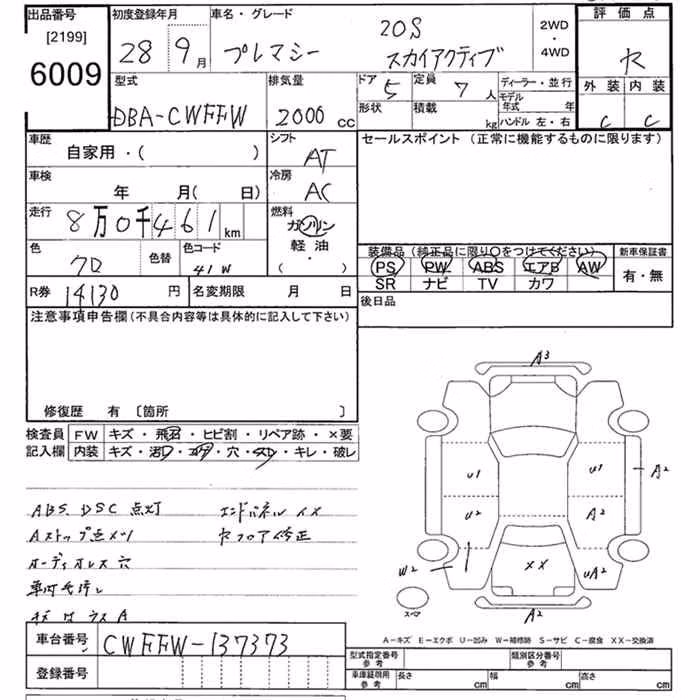 出品番号
[2199]
6009
初度登録年月
28年9月
車名・グレード
プレマシー
20S
スカイアクティブ
2WD
・
4WD
評価点
外装 内装
C C
型式
DBA-CWFFW
排気量
2000 cc
ドア 5
形状
定員 7人
積載 kg
ディーラー・並行
モデル年式 年
ハンドル 左・右
車歴
自家用・( )
シフト
AT
セールスポイント (正常に機能するものに限ります)
車検
年 月( 日)
冷房
AC
走行
8万0千461km
燃料
ガソリン
軽油
・
( )
色
クロ
色替
色コード
41W
装備品 (純正品に限り○をつけてください)
PS PW ABS エアB AW
SR ナビ TV カワ
新車保証書
有・無
R券 14130円
名変期限 月 日
後日品
注意事項申告欄(不具合内容等は具体的に記入して下さい)
修復歴 有 〔箇所 〕
検査員
記入欄
FW キズ・飛石・ヒビ割・リペア跡・×要
内装 キズ・汚レ・コゲ・穴・スレ・キレ・破レ
ABS DSC 点灯
エンドパネル XX
オーディオレス 穴
A3
U1
U1
A2
U2
A2
W2
XX
UA2
スペア
A2
A-キズ E-エクボ U-凹み W-補修跡 S-サビ C-腐食 XX-交換済
車台番号 CWFFW-137373
登録番号
型式指定番号
参考
類別区分番号
参考
車庫証明用
参考
長さ cm
幅 cm
高さ cm